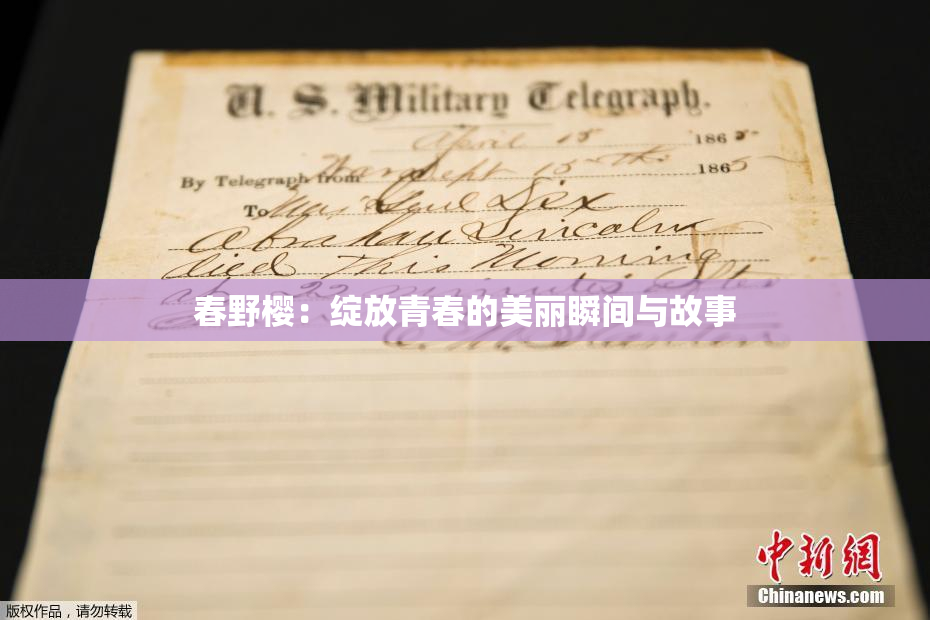 U. S. Military Telegraph.
April 15 1865
By Telegraph from War Dept 15th 1865
To Maj Genl Dix
Abraham Lincoln
died This Morning
at 22 minutes after
春野樱：绽放青春的美丽瞬间与故事
E. M. Stanton
中新网
Chinanews.com
版权作品，请勿转载